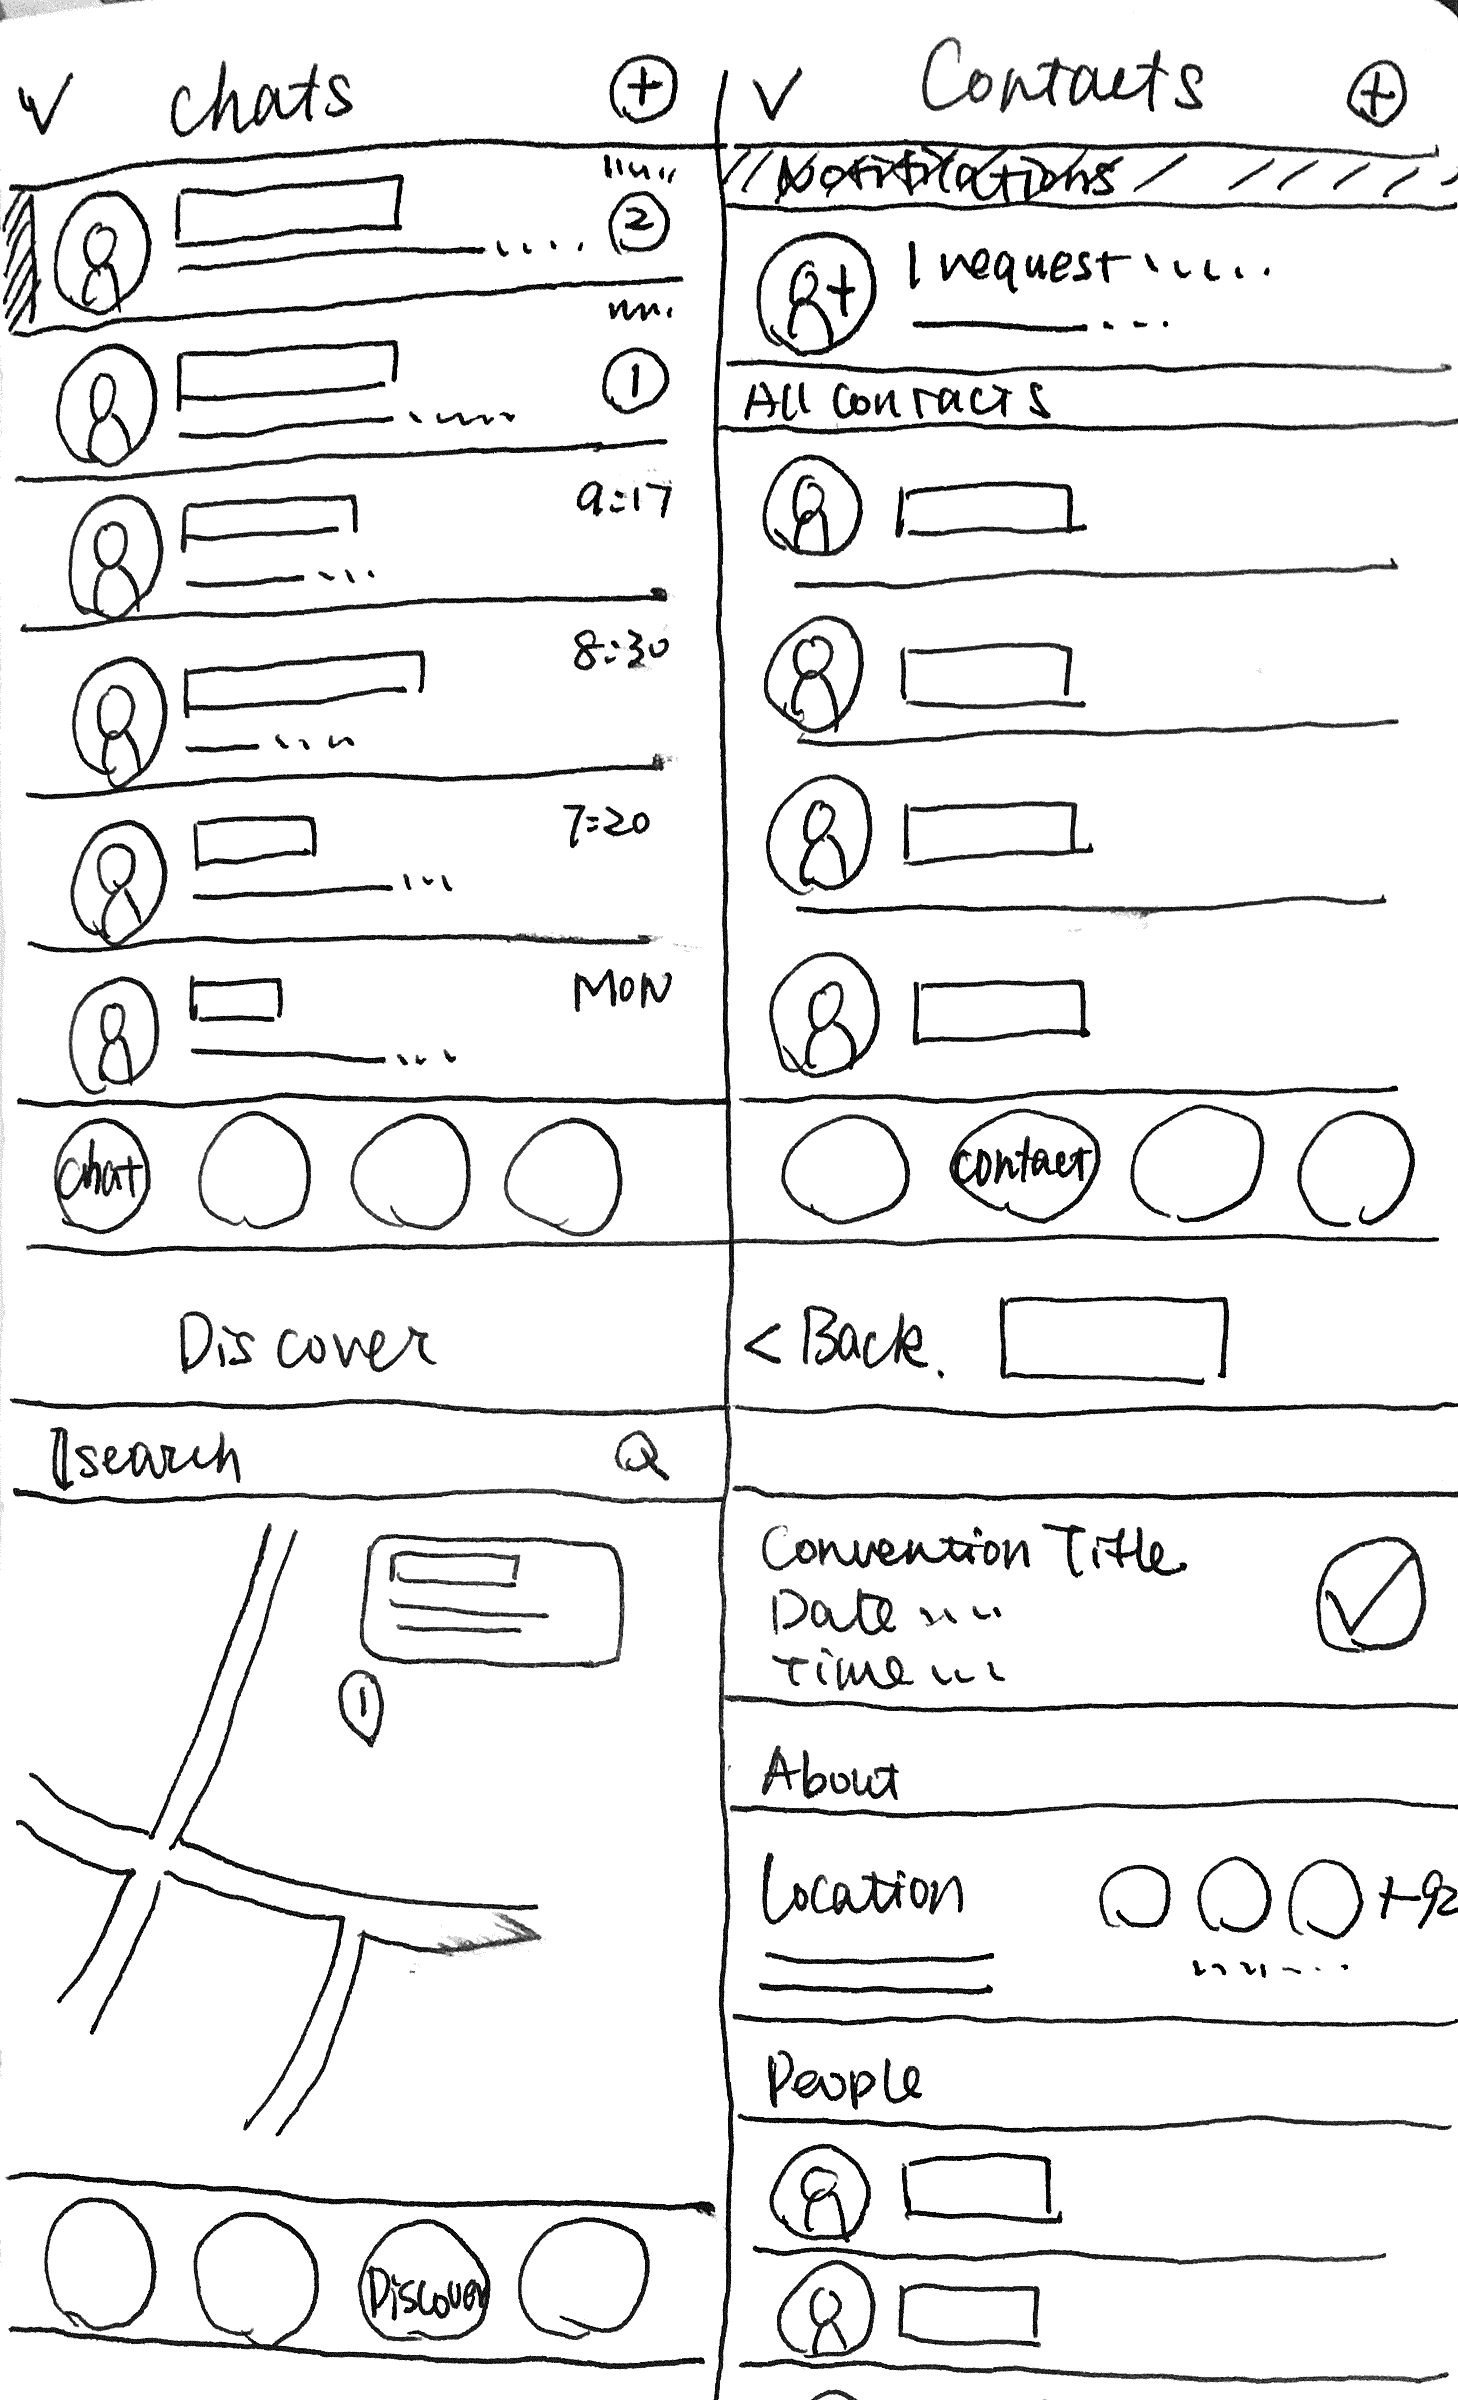 chats
+
2
1
9:17
8:30
7:20
MON
chat
Contacts
+
Notifications
1 request .....
All contacts
contact
Discover
search
1
Discover
< Back.
Convention Title
Date ....
Time ...
About
Location
+92
People